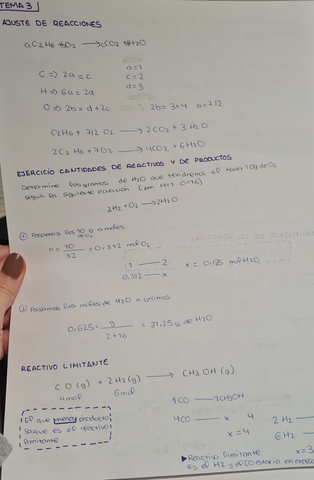 TEMA 3
AJUSTE DE REACCIONES
aC2H6 + bO2 → cCO2 + dH2O
C => 2a = c
a=1
c=2
d=3
H => 6a = 2d
O => 2b = d+2c
2b = 3+4 b=7/2
C2H6 + 7/2 O2 → 2CO2 + 3H2O
2C2H6 + 7O2 → 4CO2 + 6H2O
EJERCICIO CANTIDADES DE REACTIVOS Y DE PRODUCTOS
Determine los gramos de H2O que tendremos al hacer 10g de O2
según la siguiente ecuación (pm H=1 O=16)
2H2 + O2 → 2H2O
① Pasamos los 10 g a moles
de O2
n = 10/32 = 0,312 mol O2
1 — 2
0,312 — x
x = 0,625 mol H2O
② Pasamos los moles de H2O a gramos
0,625 = g/2+16 = 11,25 g de H2O
REACTIVO LIMITANTE
CO(g) + 2H2(g) → CH3OH(g)
4mol 6mol
El que menos producto
saque es el reactivo
limitante
1CO — 1CH3OH
4CO — x 4
x = 4
2H2 —
6H2 —
x=3
▶ Reactivo limitante
es el H2 y el CO estaría en exceso